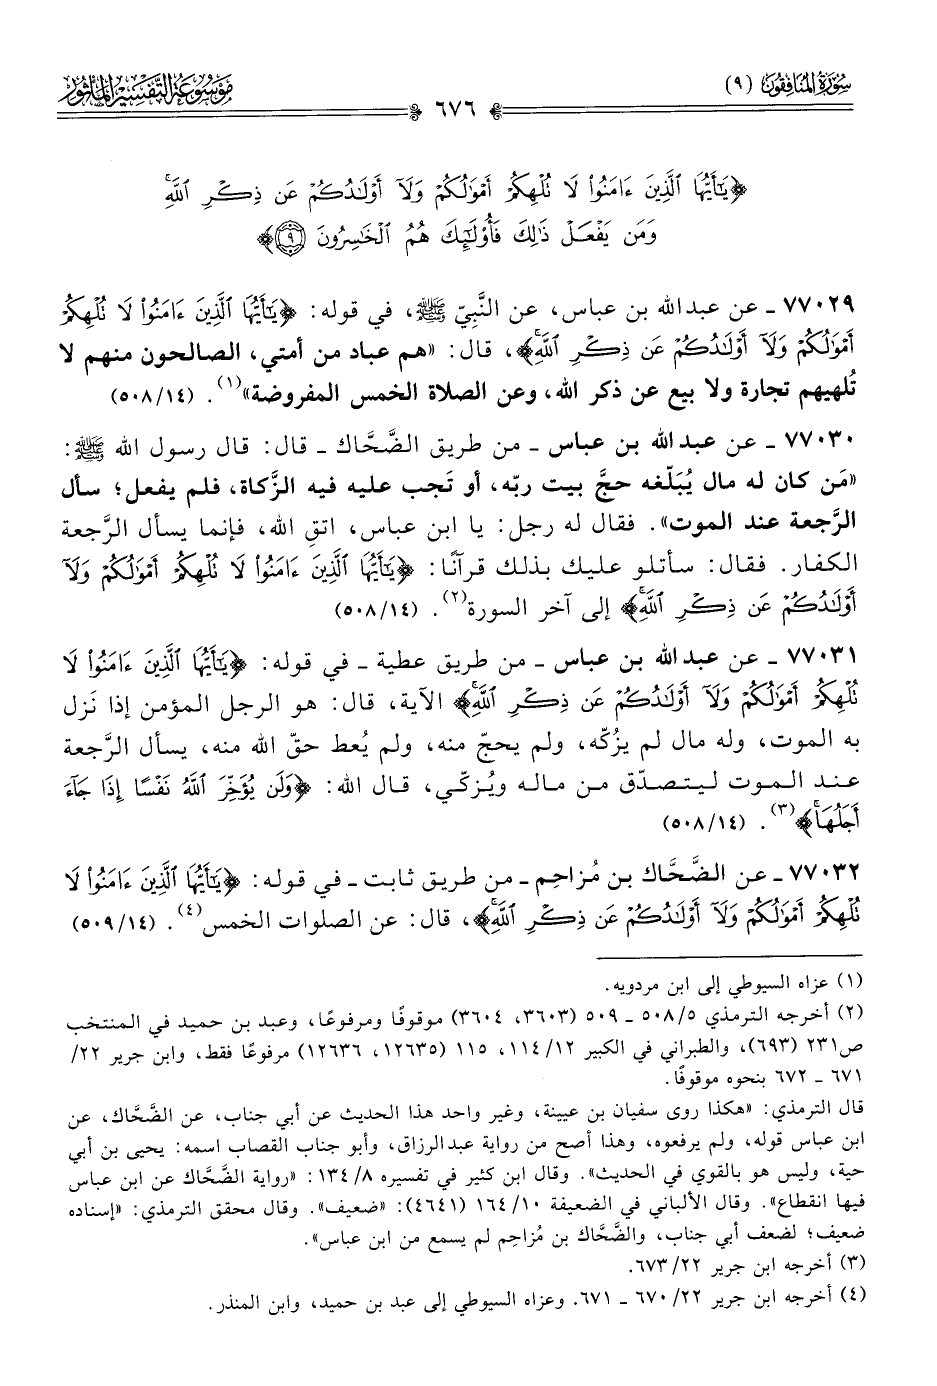 سورة المنافقون (٩)
٦٧٦
موسوعة التفسير المأثور
﴿يَٰٓأَيُّهَا ٱلَّذِينَ ءَامَنُوا۟ لَا تُلْهِكُمْ أَمْوَٰلُكُمْ وَلَآ أَوْلَٰدُكُمْ عَن ذِكْرِ ٱللَّهِۚ
وَمَن يَفْعَلْ ذَٰلِكَ فَأُو۟لَٰٓئِكَ هُمُ ٱلْخَٰسِرُونَ ٩﴾
٧٧٠٢٩ ـ عن عبدالله بن عباس، عن النَّبيّ ﷺ، في قوله: ﴿يَٰٓأَيُّهَا ٱلَّذِينَ ءَامَنُوا۟ لَا تُلْهِكُمْ
أَمْوَٰلُكُمْ وَلَآ أَوْلَٰدُكُمْ عَن ذِكْرِ ٱللَّهِۚ﴾، قال: «هم عباد من أمتي، الصالحون منهم لا
تُلهيهم تجارة ولا بيع عن ذكر الله، وعن الصلاة الخمس المفروضة»(١). (٥٠٨/١٤)
٧٧٠٣٠ ـ عن عبدالله بن عباس ـ من طريق الضَّحَّاك ـ قال: قال رسول الله ﷺ:
«مَن كان له مال يُبَلّغه حجَّ بيت ربّه، أو تَجب عليه فيه الزَّكاة، فلم يفعل؛ سأل
الرَّجعة عند الموت». فقال له رجل: يا ابن عباس، اتقِ الله، فإنما يسأل الرَّجعة
الكفار. فقال: سأتلو عليك بذلك قرآنًا: ﴿يَٰٓأَيُّهَا ٱلَّذِينَ ءَامَنُوا۟ لَا تُلْهِكُمْ أَمْوَٰلُكُمْ وَلَآ
أَوْلَٰدُكُمْ عَن ذِكْرِ ٱللَّهِۚ﴾ إلى آخر السورة(٢). (٥٠٨/١٤)
٧٧٠٣١ ـ عن عبدالله بن عباس ـ من طريق عطية ـ في قوله: ﴿يَٰٓأَيُّهَا ٱلَّذِينَ ءَامَنُوا۟ لَا
تُلْهِكُمْ أَمْوَٰلُكُمْ وَلَآ أَوْلَٰدُكُمْ عَن ذِكْرِ ٱللَّهِۚ﴾ الآية، قال: هو الرجل المؤمن إذا نَزل
به الموت، وله مال لم يزُكّه، ولم يحجّ منه، ولم يُعط حقّ الله منه، يسأل الرَّجعة
عند الموت ليتصدّق من ماله ويُزكي، قال الله: ﴿وَلَن يُؤَخِّرَ ٱللَّهُ نَفْسًا إِذَا جَآءَ
أَجَلُهَاۚ﴾(٣). (٥٠٨/١٤)
٧٧٠٣٢ ـ عن الضَّحَّاك بن مُزاحِم ـ من طريق ثابت ـ في قوله: ﴿يَٰٓأَيُّهَا ٱلَّذِينَ ءَامَنُوا۟ لَا
تُلْهِكُمْ أَمْوَٰلُكُمْ وَلَآ أَوْلَٰدُكُمْ عَن ذِكْرِ ٱللَّهِۚ﴾، قال: عن الصلوات الخمس(٤). (٥٠٩/١٤)
(١) عزاه السيوطي إلى ابن مردويه.
(٢) أخرجه الترمذي ٥/ ٥٠٨ ـ ٥٠٩ (٣٦٠٣، ٣٦٠٤) موقوفًا ومرفوعًا، وعبد بن حميد في المنتخب
ص٢٣١ (٦٩٣)، والطبراني في الكبير ١٢/ ١١٤، ١١٥ (١٢٦٣٥، ١٢٦٣٦) مرفوعًا فقط، وابن جرير ٢٢/
٦٧١ ـ ٦٧٢ بنحوه موقوفًا.
قال الترمذي: «هكذا روى سفيان بن عيينة، وغير واحد هذا الحديث عن أبي جناب، عن الضَّحَّاك، عن
ابن عباس قوله، ولم يرفعوه، وهذا أصح من رواية عبدالرزاق، وأبو جناب القصاب اسمه: يحيى بن أبي
حية، وليس هو بالقوي في الحديث». وقال ابن كثير في تفسيره ٨/ ١٣٤: «رواية الضَّحَّاك عن ابن عباس
فيها انقطاع». وقال الألباني في الضعيفة ١٠/ ١٦٤ (٤٦٤١): «ضعيف». وقال محقق الترمذي: «إسناده
ضعيف؛ لضعف أبي جناب، والضَّحَّاك بن مُزاحِم لم يسمع من ابن عباس».
(٣) أخرجه ابن جرير ٢٢/ ٦٧٣.
(٤) أخرجه ابن جرير ٢٢/ ٦٧٠ ـ ٦٧١. وعزاه السيوطي إلى عبد بن حميد، وابن المنذر.